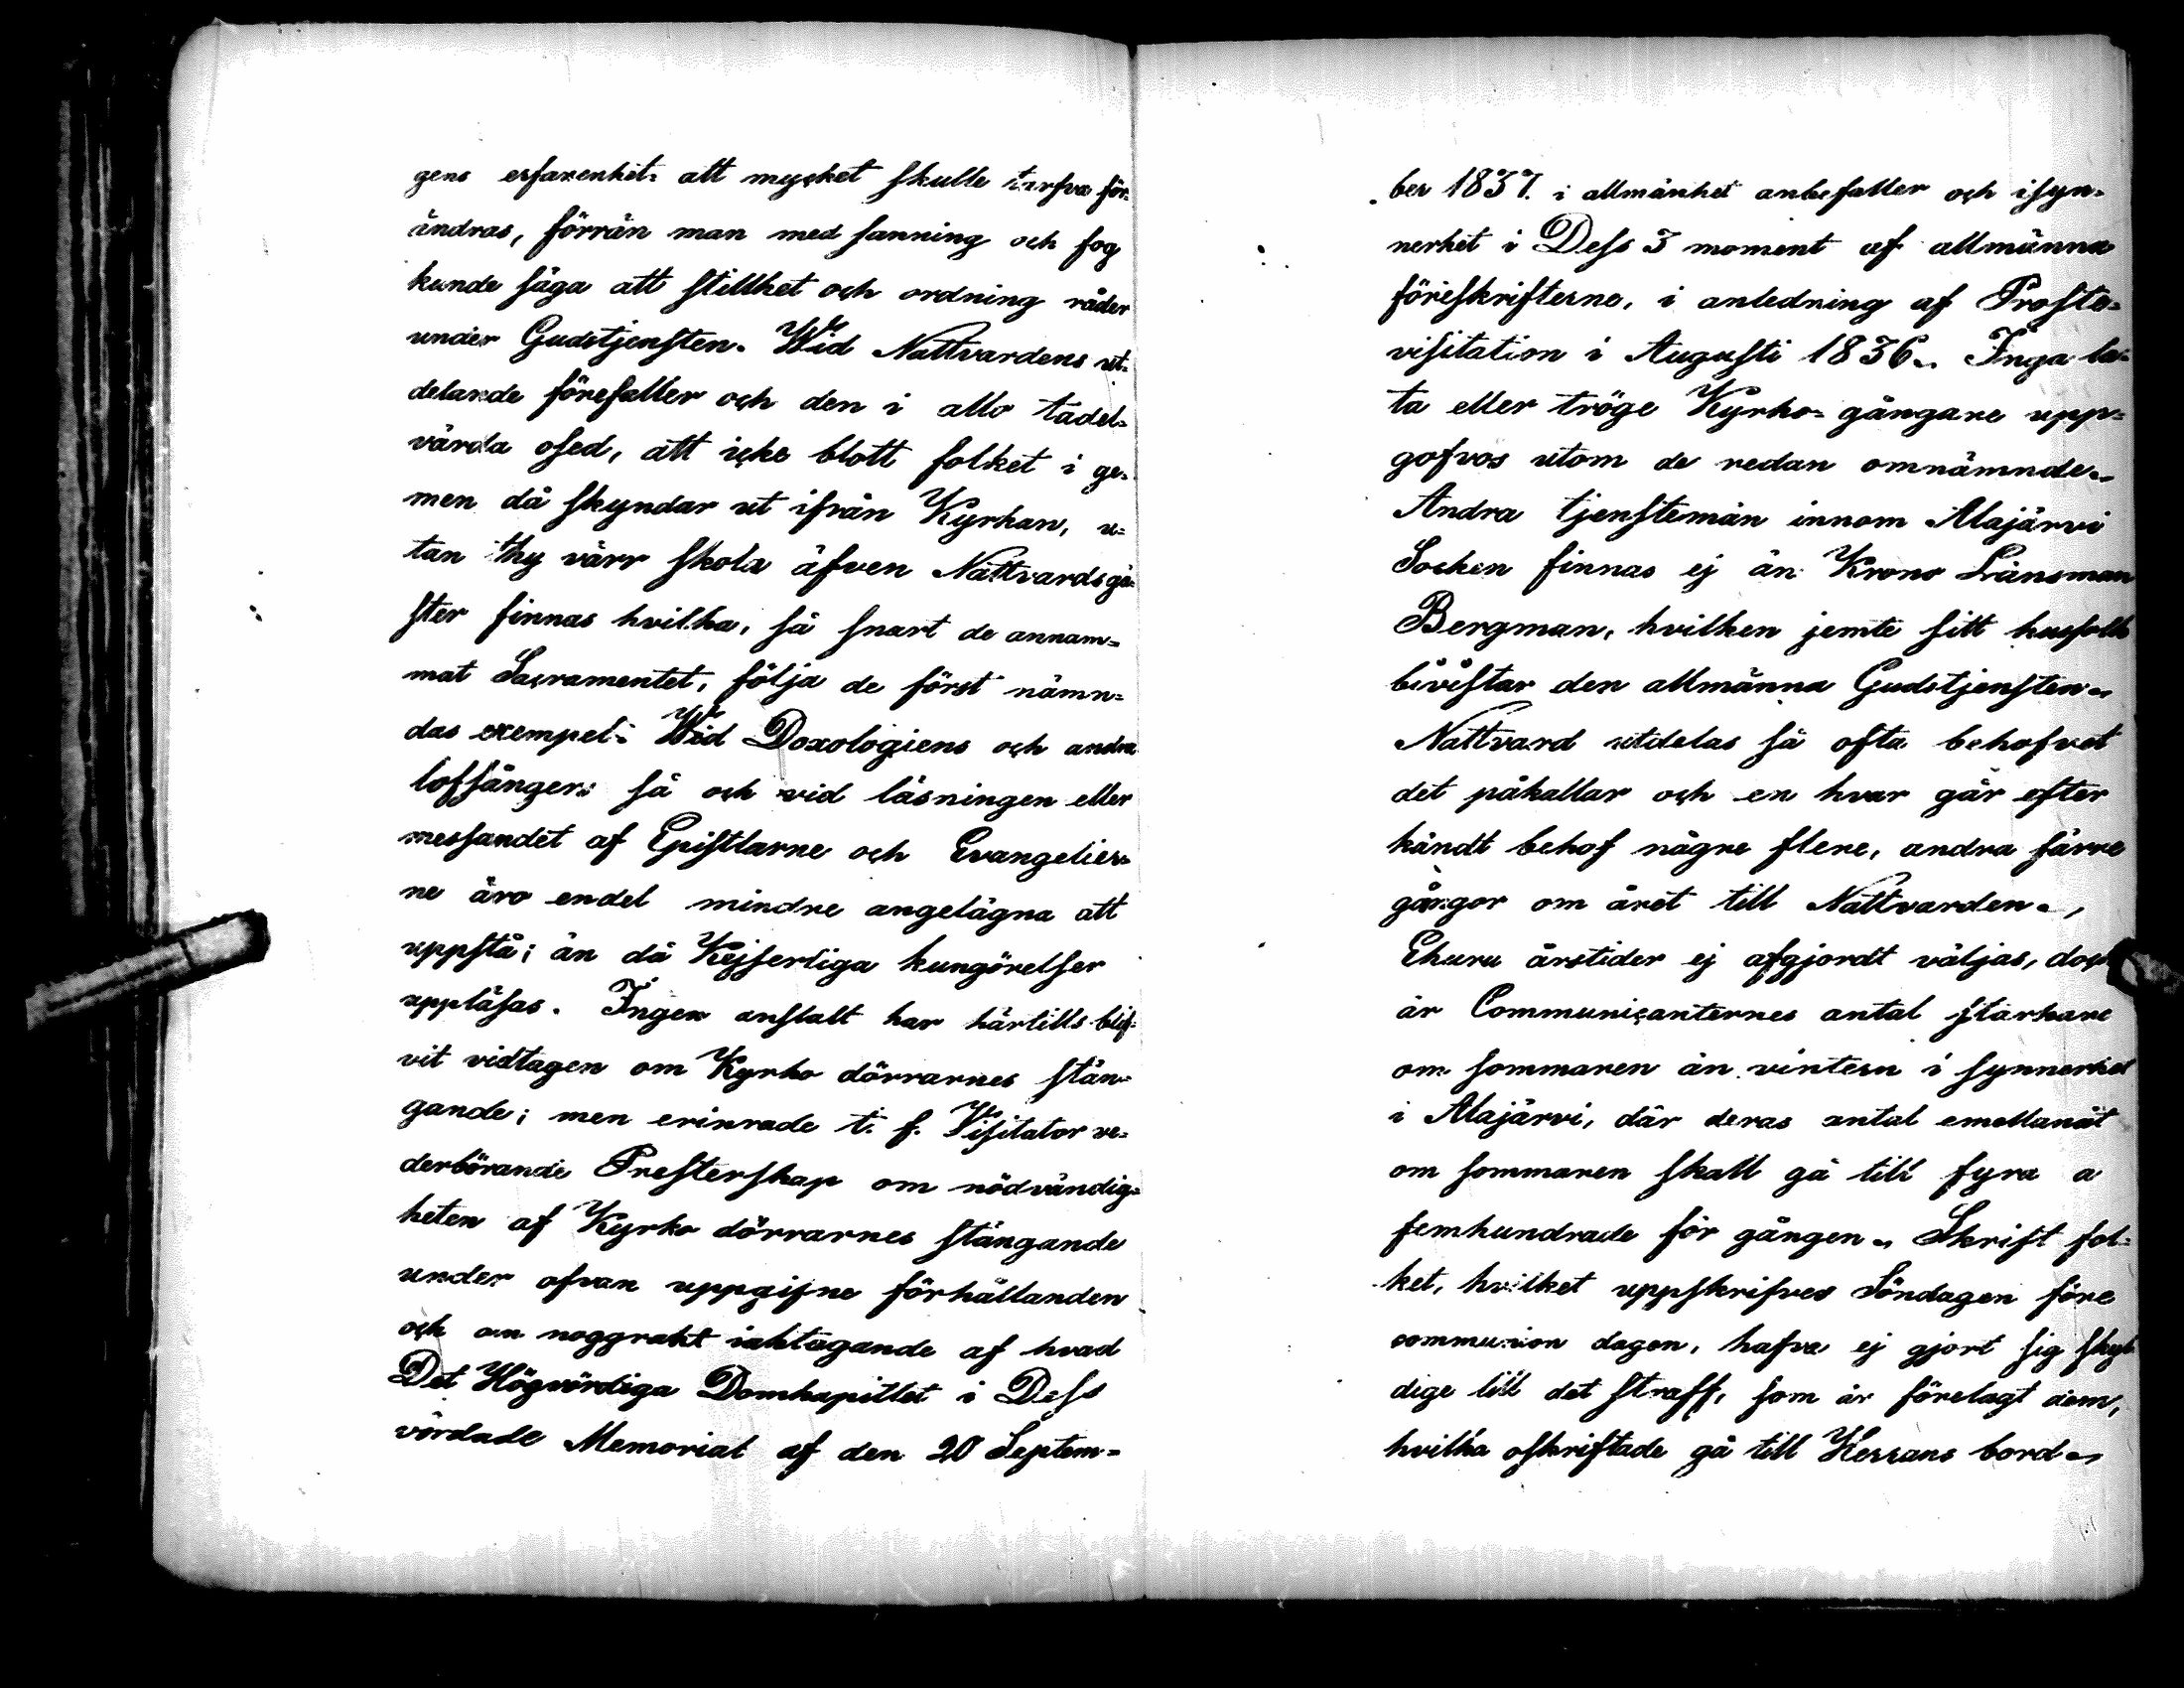 gens erfarenhet: att mycket skulle tarfva för-
ändras, förrän man med sanning och fog
kunde säga att stillhet och ordning råder
under Gudstjensten. Wid Nattvardens ut-
delande förefaller och den i allo tadel-
värda osed, att icke blott folket i ge-
men då skyndar ut ifrån Kyrkan, u-
tan thy värr skola äfven Nattvardsgä-
ster finnas hvilka, så snart de annam-
mat Sacramentet, följa de först nämn-
das exempel: Wid Doxologiens och andra
lofsånger: så och vid läsningen eller
messandet af Epistlarne och Evangelier-
ne äro endel mindre angelägna att
uppstå; än då Kejserliga kungörelser
uppläsas. Ingen anstalt har härtills blif-
vit vidtagen om Kyrko dörrarnes stän-
gande; men erinrade t. f. Visitator ve-
derbörande Presterskap om nödvändig-
heten af Kyrko dörrarnes stängande
under ofvan uppgifne förhållanden
och om noggrakt iakttagande af hvad
Det Högvördiga Domkapitlet i Dess
vördade Memorial af den 20 Septem-
ber 1837. i allmänhet anbefaller och isyn-
nerhet i Dess 3 moment af allmänna
föreskrifterne, i anledning af Proste-
visitation i Augusti 1836. Inga la-
ta eller tröge Kyrko-gångare upp-
gofvos utom de redan omnämnde.
Andra tjenstemän innom Alajärvi
Socken finnas ej än Krono Länsman
Bergman, hvilken jemte sitt husfolk
bivistar den allmänna Gudstjensten.
Nattvard utdelas så ofta behofvet
det påkallar och en hvar går efter
kändt behof någre flere, andra färre
gångor om året till Nattvarden.,
Ehuru årstider ej afgjordt väljas, dock
är Communicanternes antal starkare
om sommaren än vintern i synnerhet
i Alajärvi, där deras antal emellanåt
om sommaren skall gå till fyra a
femhundrade för gången. Skrift fol-
ket, hvilket uppskrifves Söndagen före
communion dagen, hafva ej gjort sig skyl-
dige till det straff, som är förelagt dem,
hvilka oskriftade gå till Herrans bord.